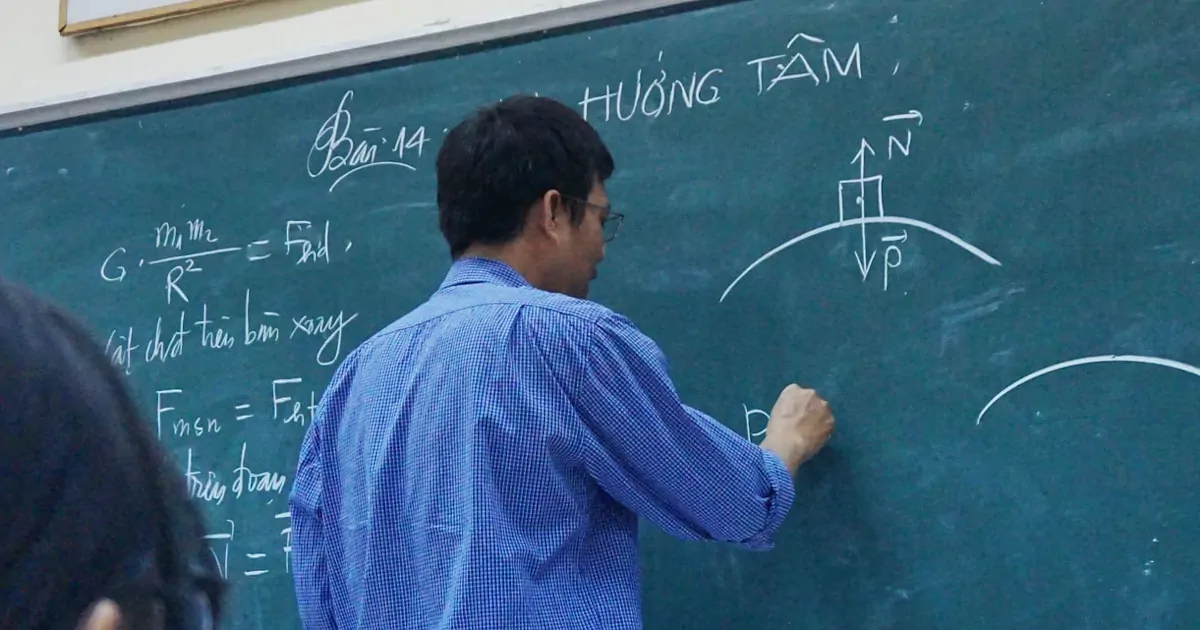 Bài 14: HƯỚNG TÂM
G. m₁m₂/R² = Fhd
Vật chất trên bàn xoay
Fmsn = Fht
trên đoạn
N⃗ =
N⃗
P⃗
P